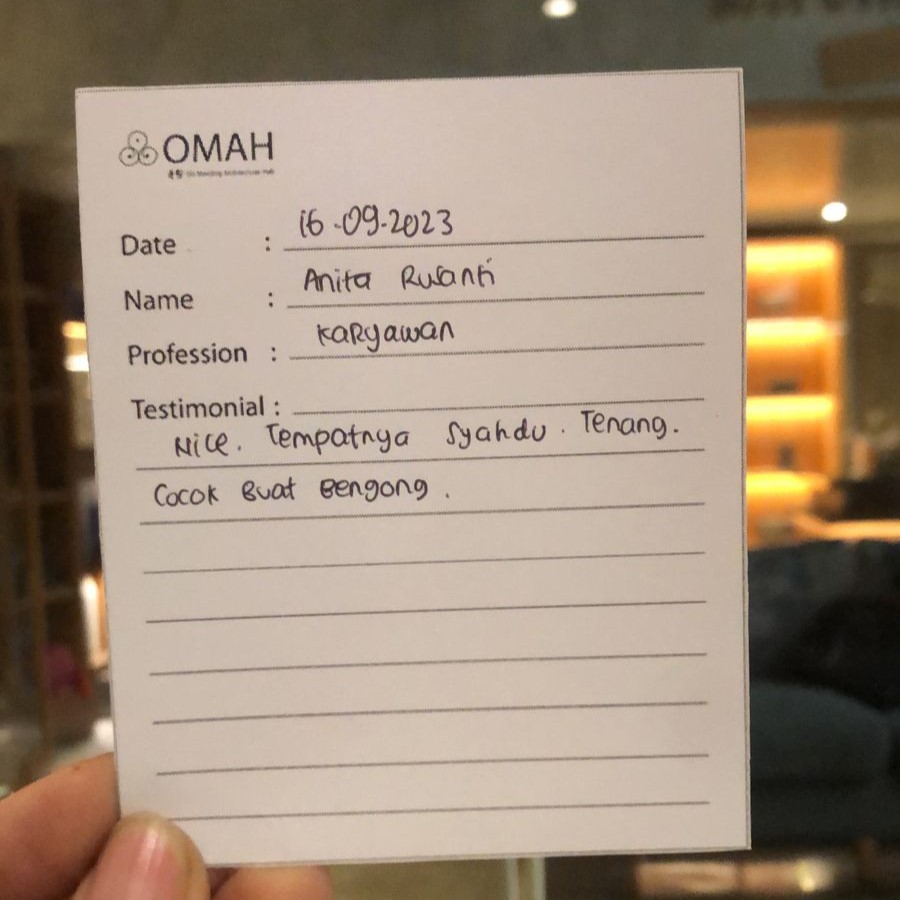 OMAH
Date : 16-09-2023
Name : Anita Rusanti
Profession : Karyawan
Testimonial :
Nice. Tempatnya Syahdu. Tenang.
Cocok Buat Bengong.